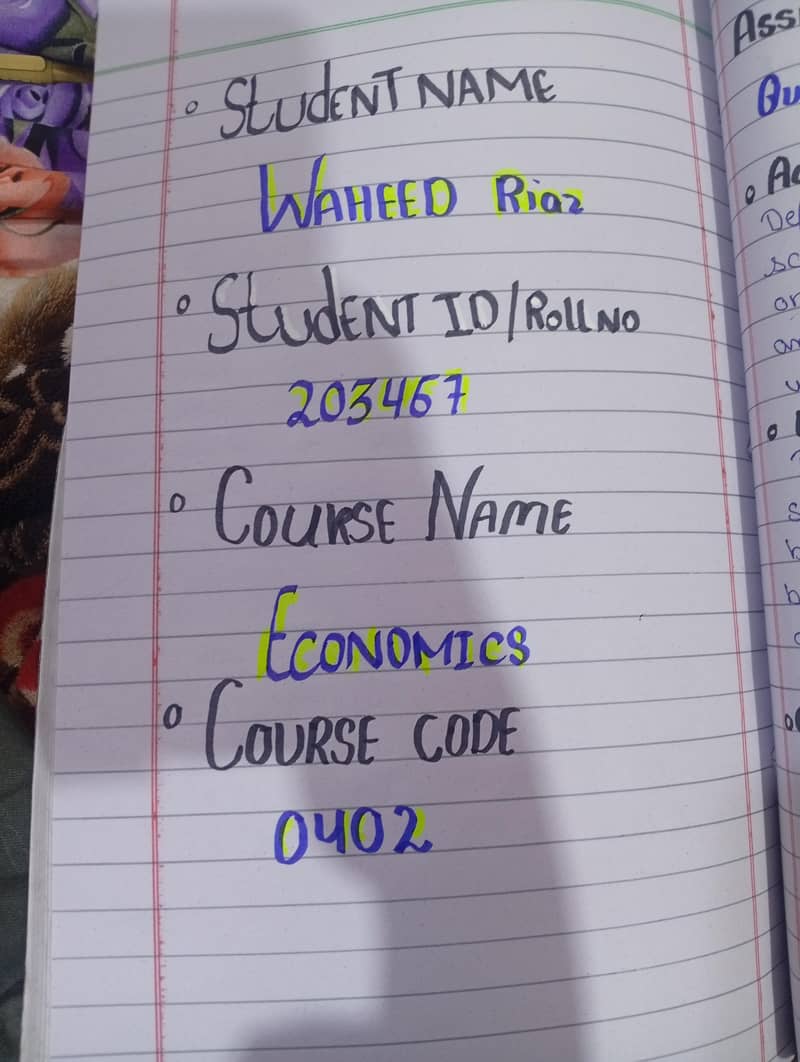 ° STUdENT NAME
WAHEED Riaz
° STUdENT ID/ROLL NO
203467
° COURSE NAME
ECONOMICS
° COURSE CODE
0402